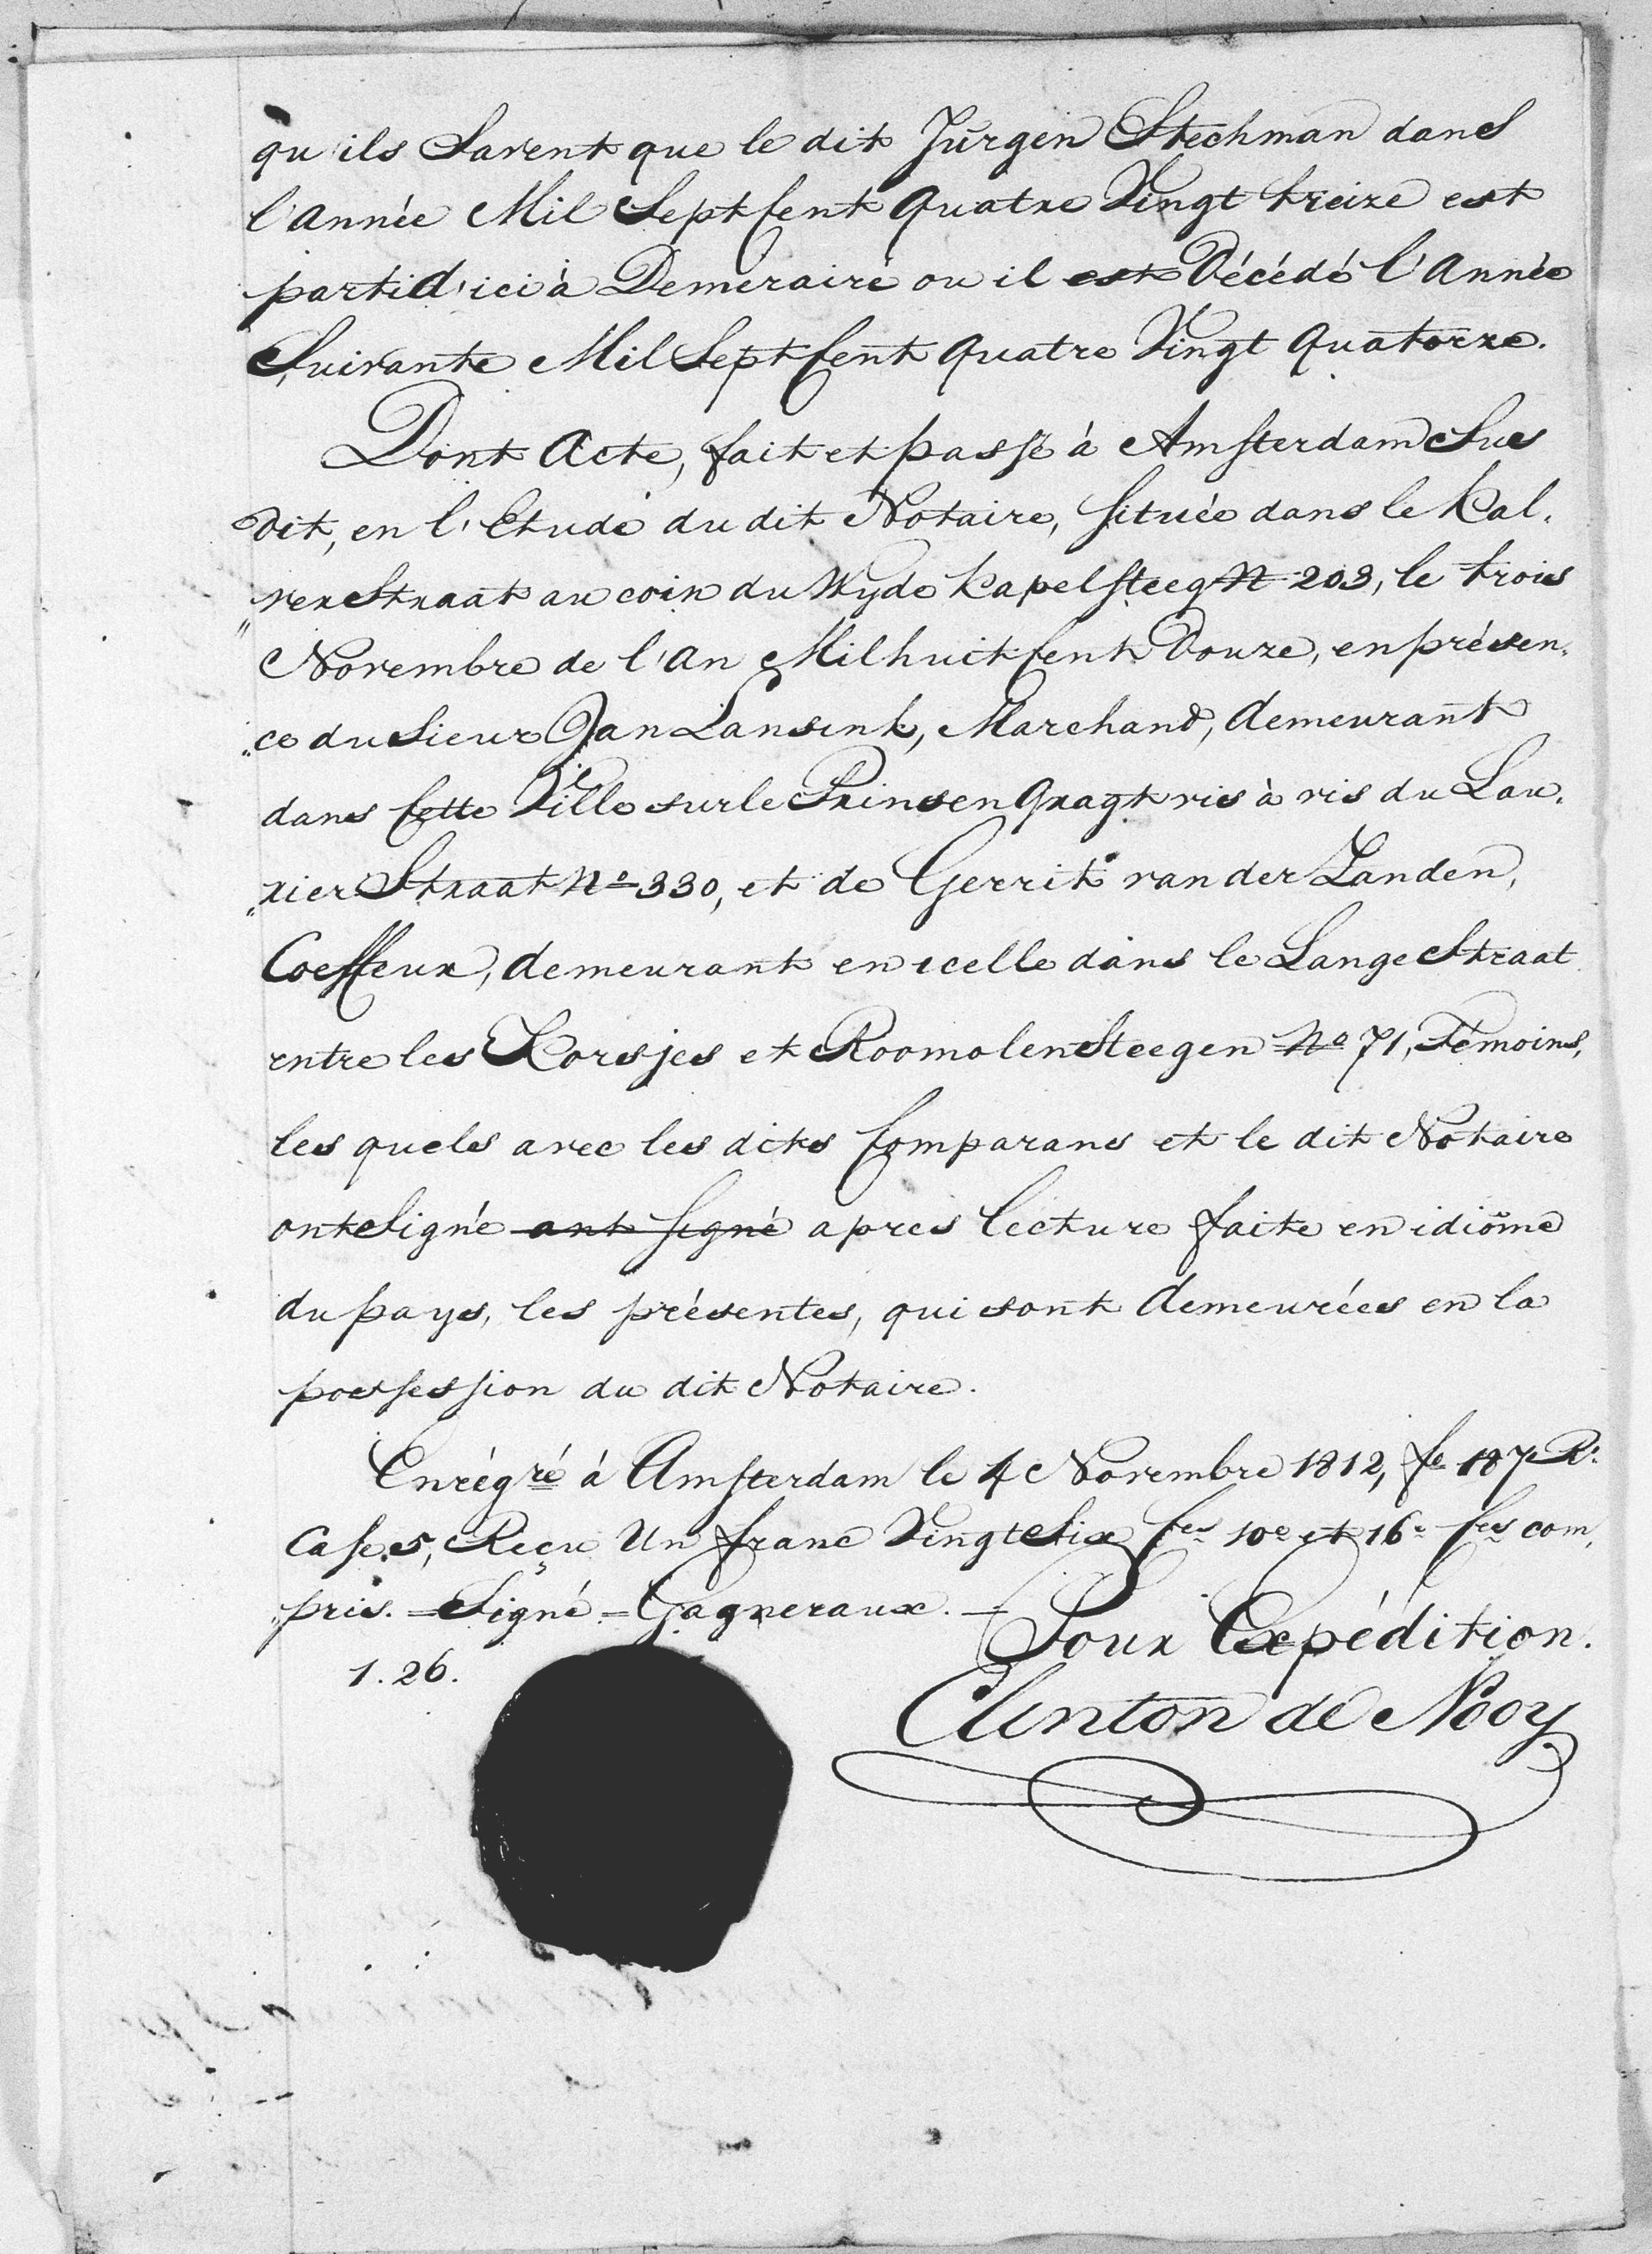 qu'ils Savent que le dit Jürgen Stechman dans
l'année Mil Sept Cent Quatre Vingt treize est
parti d'ici à Demeraire ou il est Décédé l'Année
Suivante Mil Sept Cent Quatre Vingt Quatorze.
Dont Acte, fait et passé à Amsterdam Sus
Dit, en l'Etude du dit Notaire, Située dans le Kal„
„verstraat au coin du Wyde Kapelsteeg N 203, le trois
Novembre de l'An Mil huit Cent Douze, en présen„
„ce du Sieur Jan Lansink, Marchand, demeurant
dans Cette Ville sur le Prinsen Gragt vis à vis du Lau„
„rier Straat No 330, et de Gerrit van der Zanden,
Coeffeur, demeurant en icelle dans le Lange Straat
entre les Korsjes et Roomolen Steegen No 71, Témoins,
les quels avec les dits Comparans et le dit Notaire
ont Signé ont Signé apres lecture faite en idiôme
du pays, les présentes, qui sont demeurées en la
possession du dit Notaire.
Enrégré à Amsterdam le 4 Novembre 1812, fo 187 Ro
Case 5, Reçu Un franc Vingt Six Ces 10e et 16e Ces com„
„pris. = Signé = Gagneraux. —
Pour Expédition.
1.26.
Clinton de Nooy